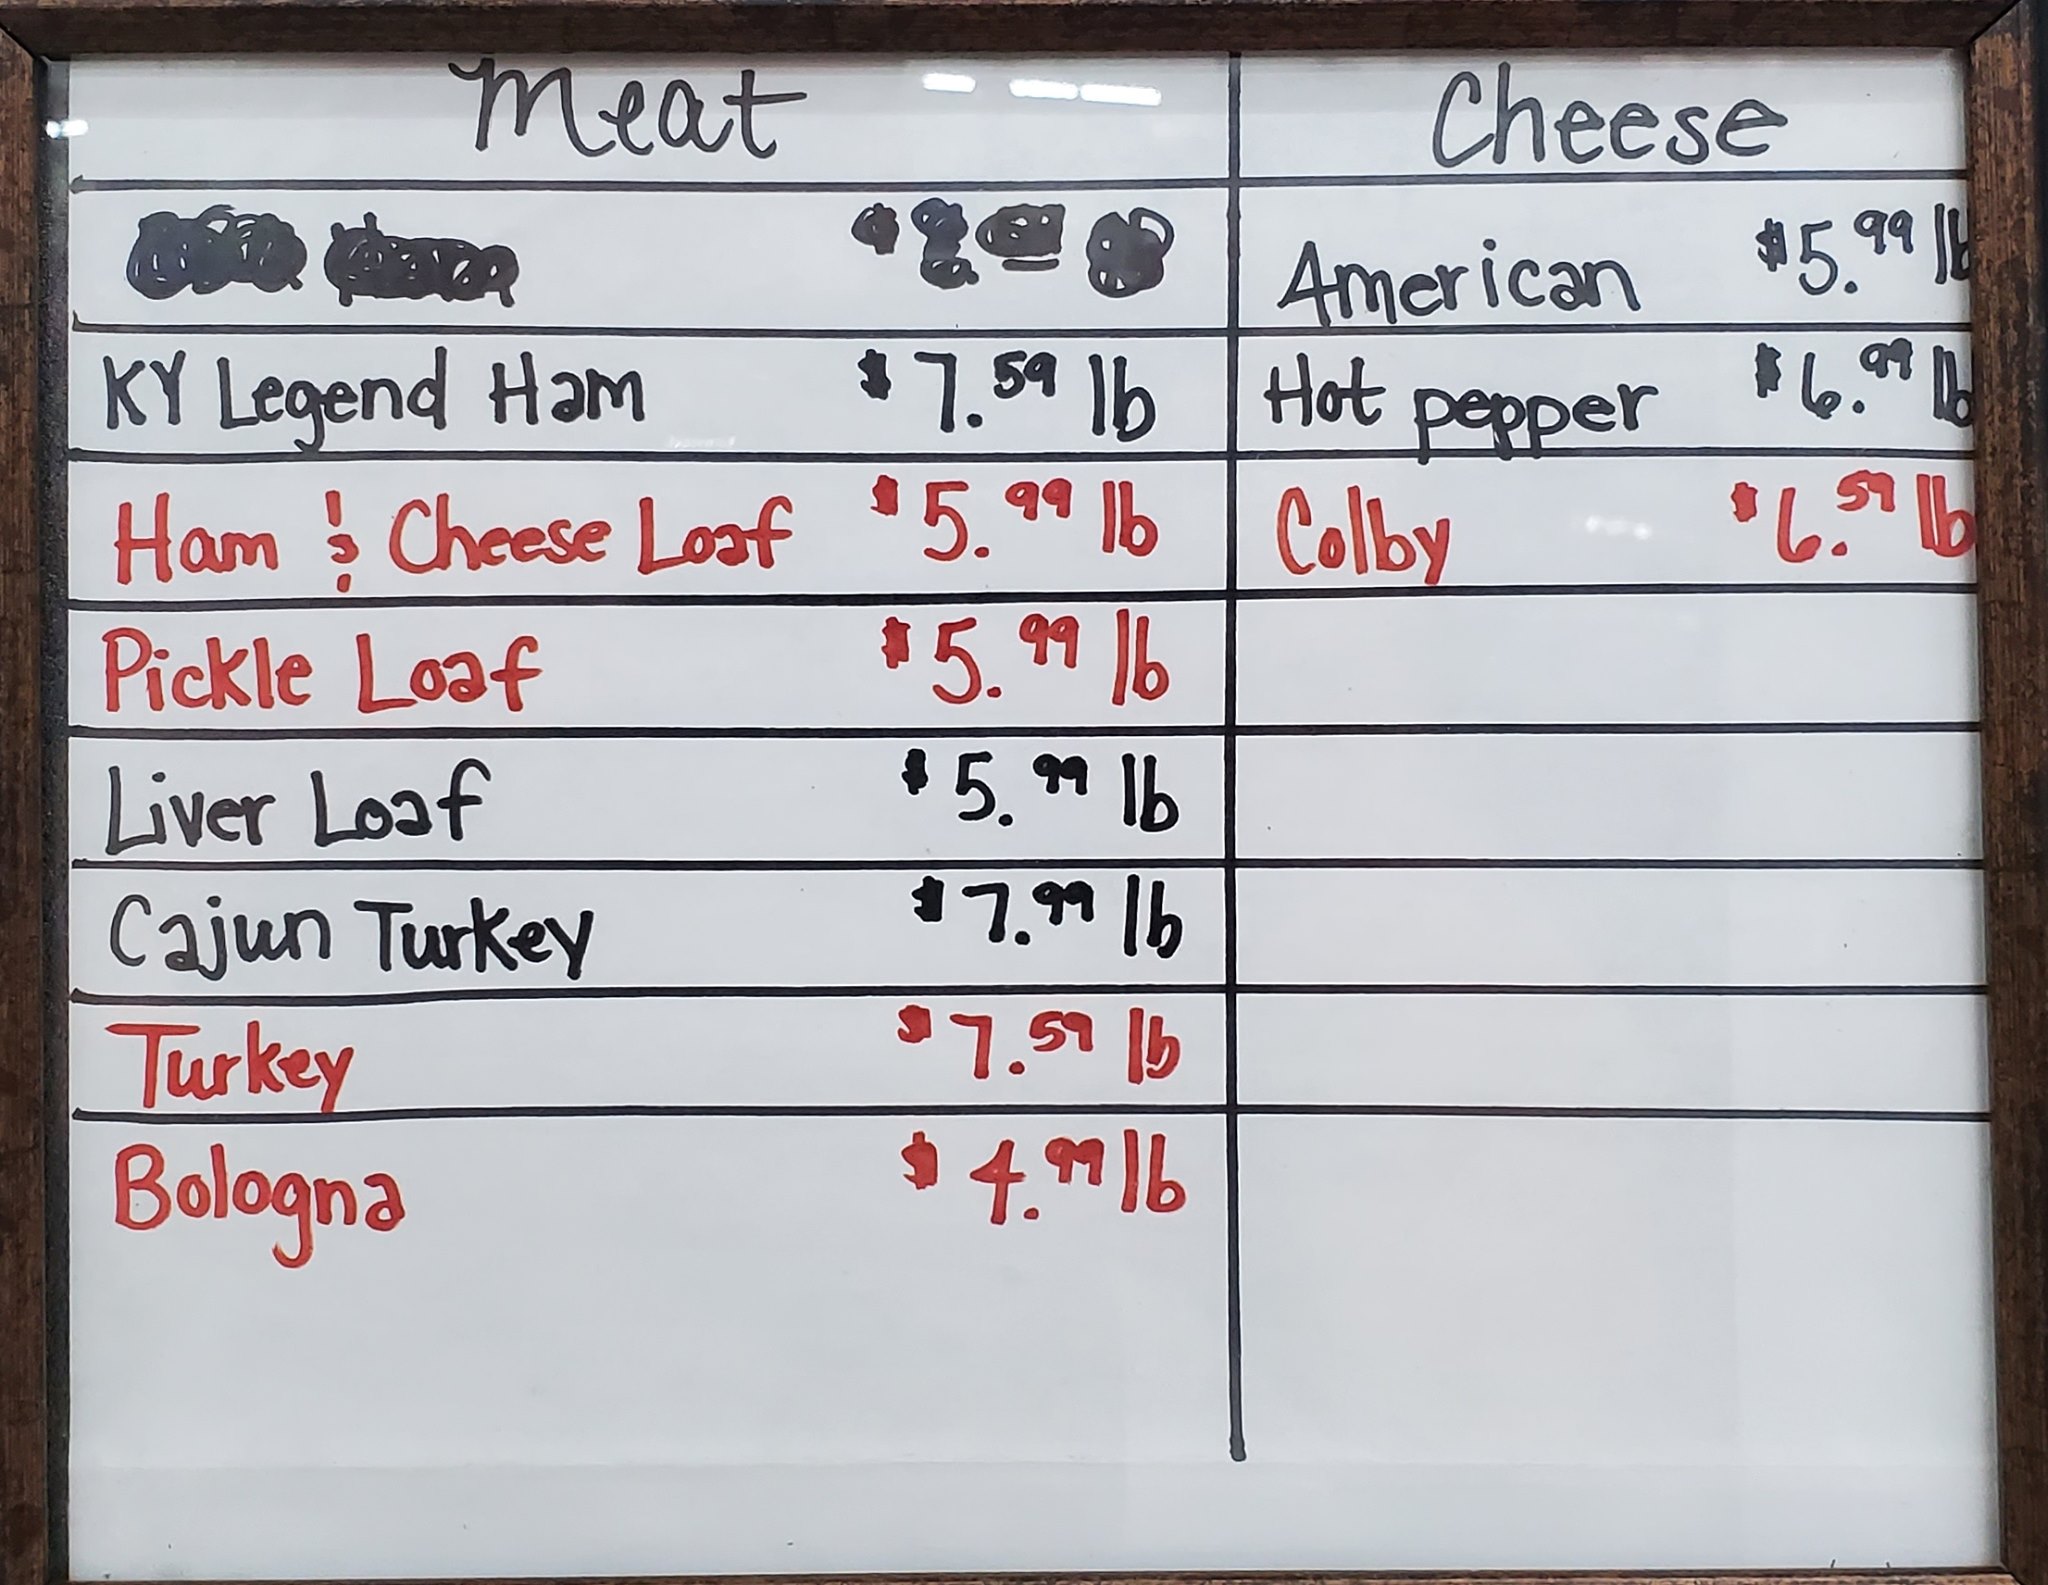 Meat
Cheese
American $5.99 lb
KY Legend Ham $7.59 lb
Hot pepper $6.99 lb
Ham & Cheese Loaf $5.99 lb
Colby $6.59 lb
Pickle Loaf $5.99 lb
Liver Loaf $5.99 lb
Cajun Turkey $7.99 lb
Turkey $7.59 lb
Bologna $4.99 lb